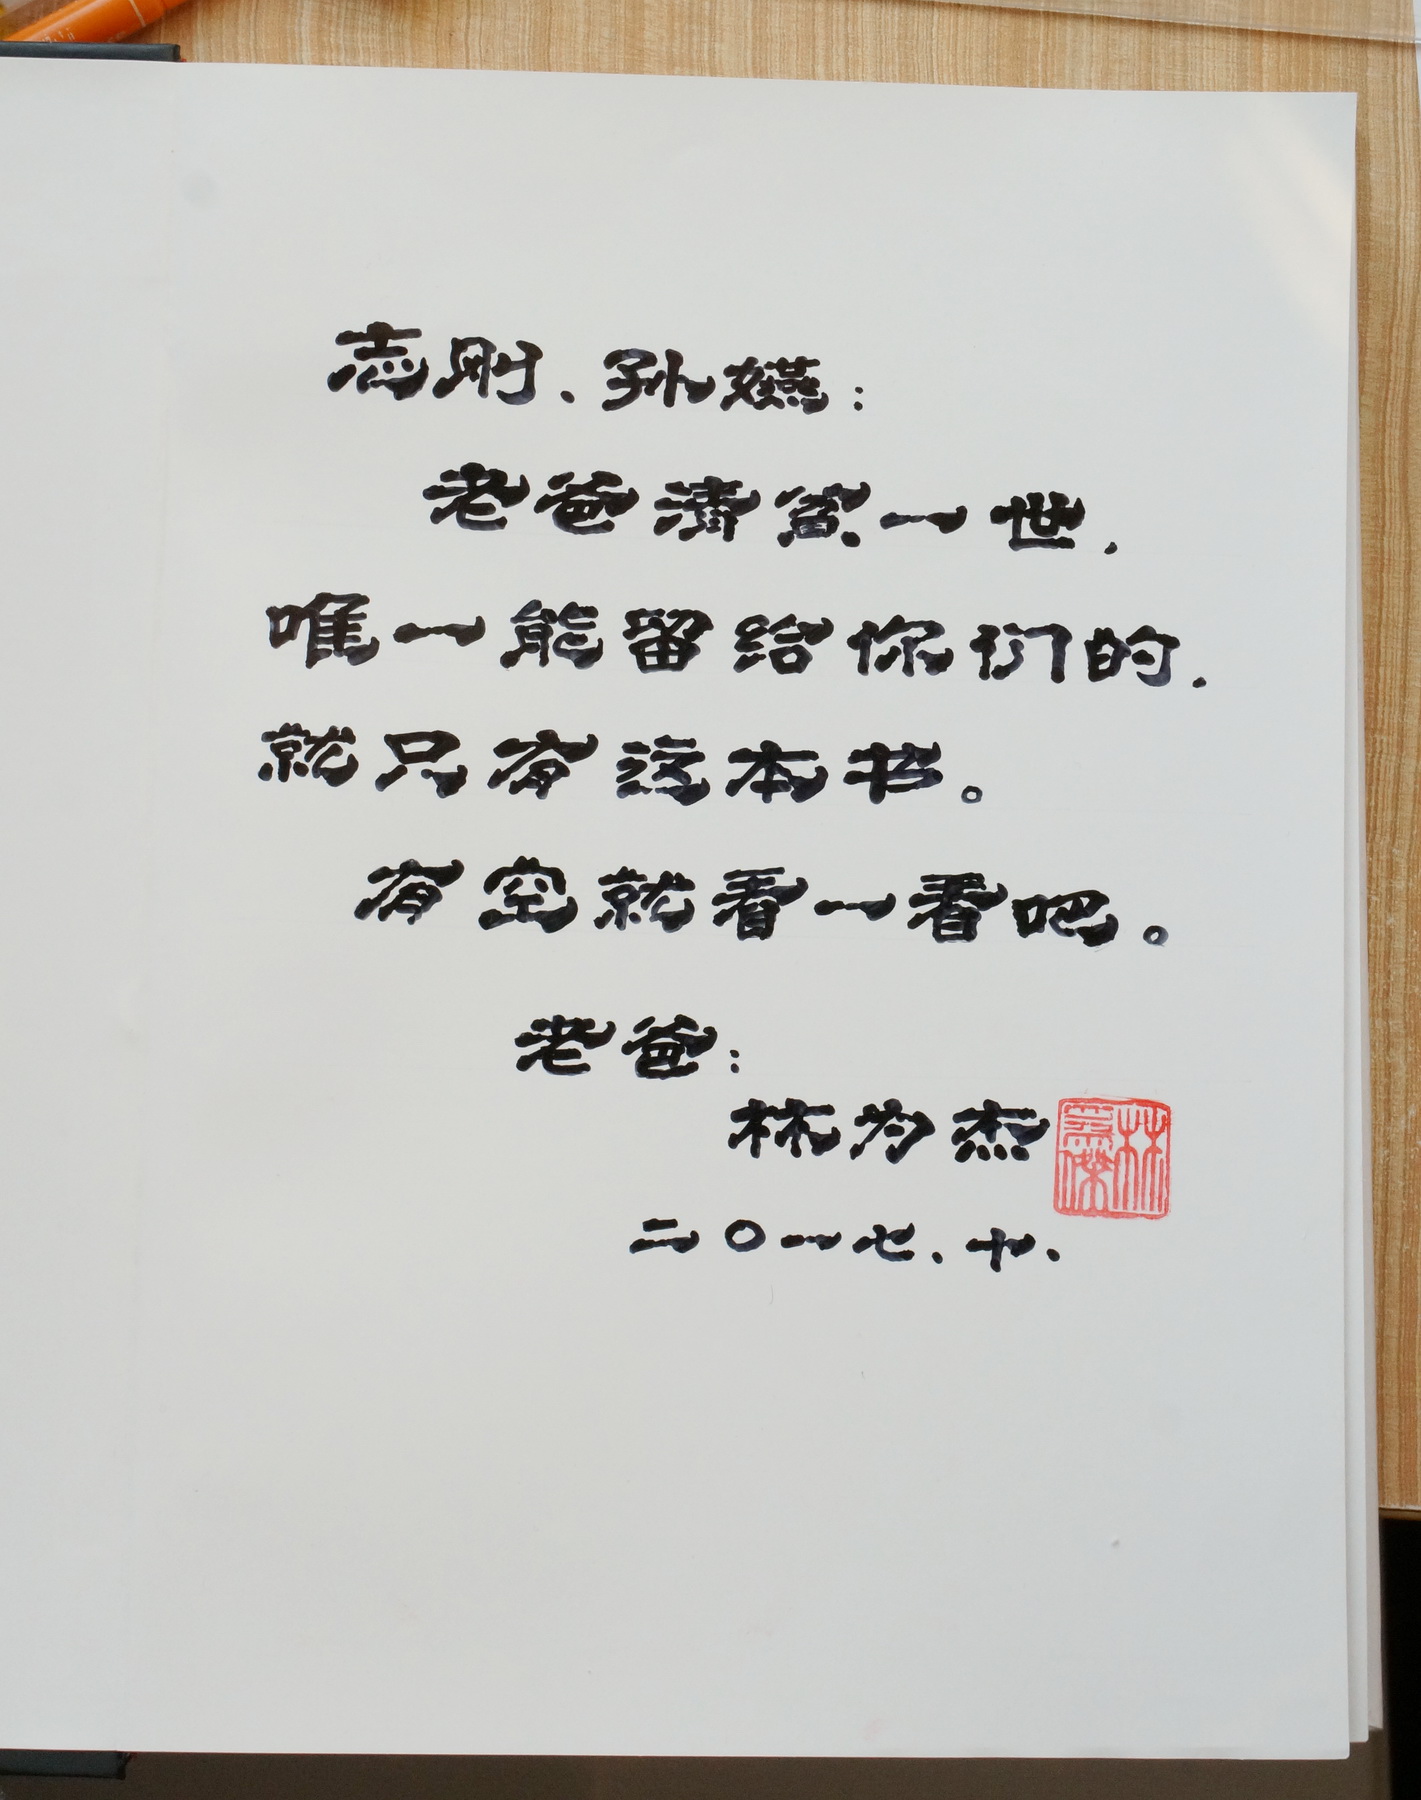 志刚、孙嬿：
老爸清贫一世，
唯一能留给你们的，
就只有这本书。
有空就看一看吧。
老爸：
林为杰
二〇一七.十.